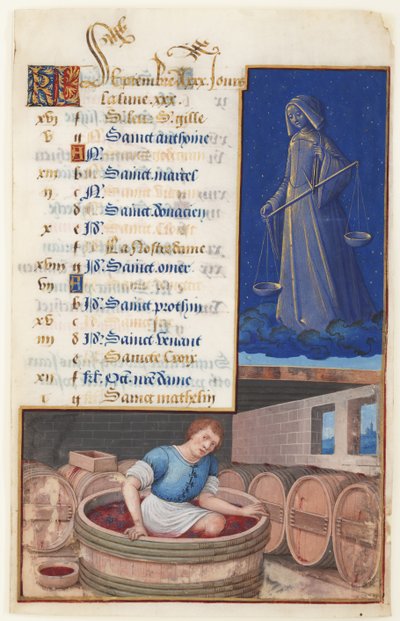 Septembre a xxx Jours
La lune xxx.
xvj f S. leu S. gille
v g Sainct anthoine
A N.
xiij b Sainct marcel
ij c N.
d Sainct donacien
x e Jd.
f La Nostre dame
xviij g Jd. Sainct omer
vij A
b Jd. Sainct prothin
xv c
iiij d Jd. Sainct
e Saincte Croix
xij f kl. Oct. nre dame
j g Sainct mathelin